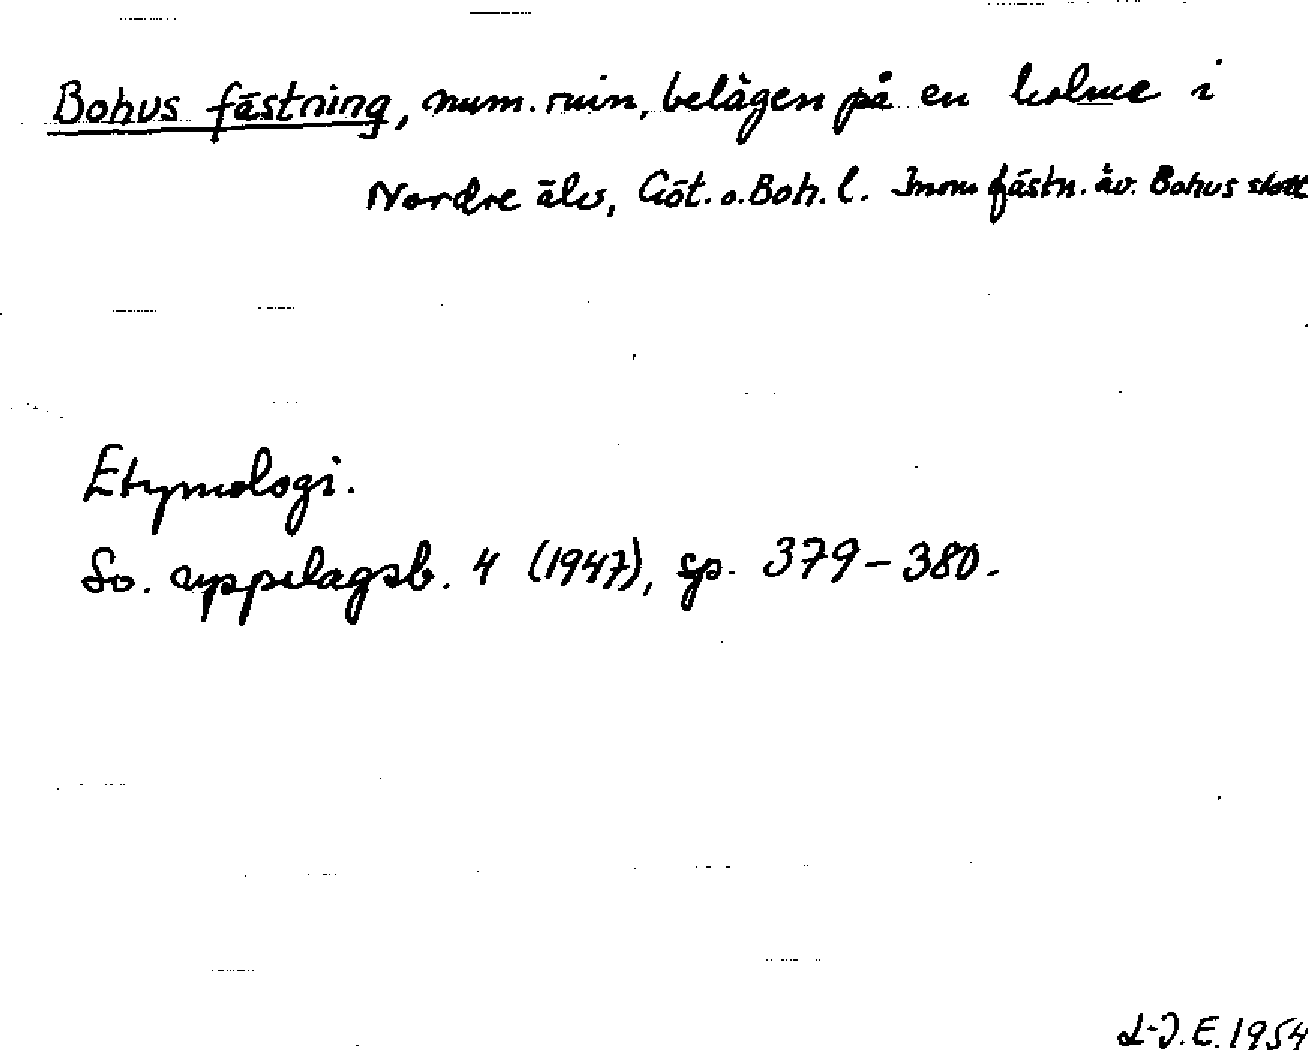 Bohus fästning, num. ruin, belägen på en holme i
Nordre älv, Göt. o. Boh. l. Inom fästn. äv. Bohus slott
Etymologi.
Sv. uppslagsb. 4 (1947), sp. 379-380.
L-J. E. 1954